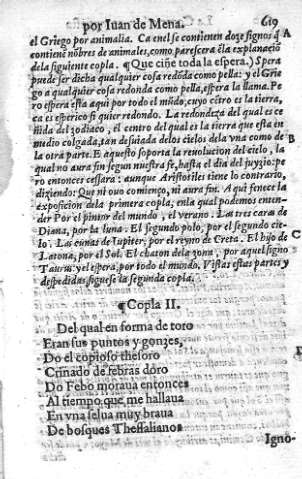 por Iuan de Mena. 619
el Griego por animalia. Ca enel se contienen doze signos q̃ A
contienẽ nõbres de animales, como parescera ẽla explanaciõ
dela siguiente copla. ¶ Que ciñe toda la espera.) Spera
puede ser dicha qualquier cosa redõda como pella: y el Grie
go a qualquier cosa redonda como pella, espera la llama. Pe
ro espera esta aqui por todo el mũdo, cuyo cẽtro es la tierra,
ca es espherico si quier redondo. La redondeza del qual es ce
ñida del zodiaco, el centro del qual es la tierra que esta en
medio colgada, tan desuiada delos cielos dela vna como de B
la otra parte. E aquesto soporta la reuolucion del cielo, la
qual no aura fin segun nuestra fe, hasta el dia del juyzio: pe
ro entonces cessara: aunque Aristotiles tiene lo contrario,
diziendo: Que ni ouo comienço, ni aura fin. Aqui fenece la
exposicion dela primera copla, enla qual podemos enten-
der Por el pintor del mundo, el verano. Las tres caras de
Diana, por la luna. El segundo polo, por el segundo cie-
lo. Las cunas de Iupiter, por el reyno de Creta. El hijo de C
Latona, por el Sol. El chaton dela zona, por aquel signo
Tauro: y el espera, por todo el mundo. Vistas estas partes y
despedidas, siguese la segunda copla.
¶ Copla II.
Del qual en forma de toro
Eran sus puntos y gonzes,
Do el copioso thesoro
Crinado de febras dóro
Do Febo moraua entonces
Al tiempo que me hallaua
En vna selua muy braua
De bosques Thessalianos
Igno-